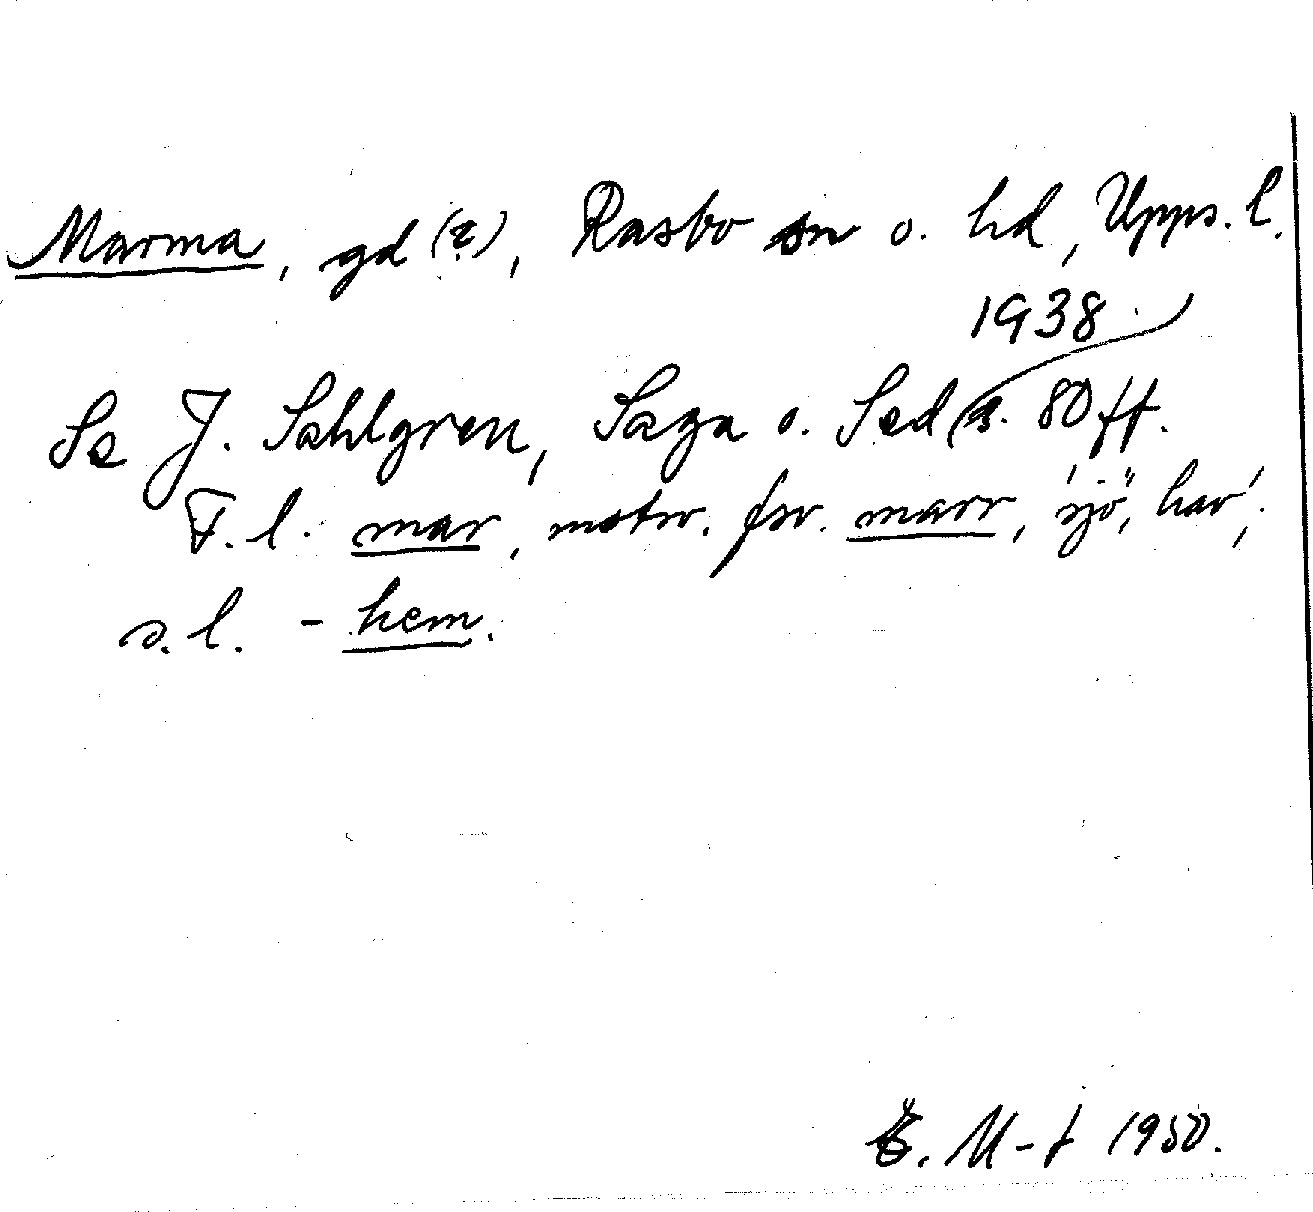 Marma, gd (?), Rasbo sn o. hd, Upps. l.
1938
Se J. Sahlgren, Saga o. Sed s. 80 ff.
F. l. mar, motsv. fsv. marr, 'sjö, hav';
s. l. - hem.
E. M-t 1950.